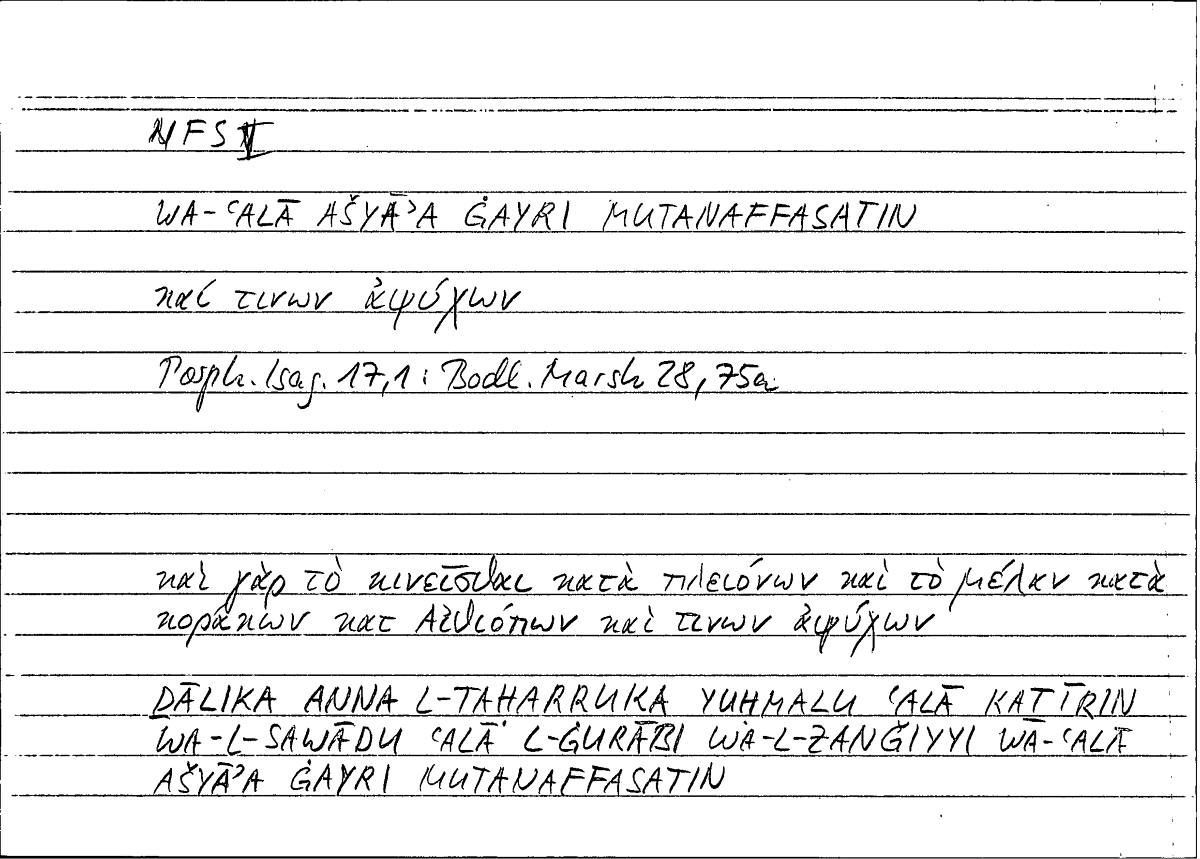 NFS V
WA-ʿALĀ AŠYĀʾA ĠAYRI MUTANAFFASATIN
καί τινων ἀψύχων
Porph. Isag. 17,1: Bodl. Marsh 28, 75a
καὶ γὰρ τὸ κινεῖσθαι κατὰ πλειόνων καὶ τὸ μέλαν κατὰ
κοράκων κατ Αἰθιόπων καὶ τινων ἀψύχων
ḎĀLIKA ANNA L-TAHARRUKA YUHMALU ʿALĀ KATĪRIN
WA-L-SAWĀDU ʿALĀ L-ĠURĀBI WA-L-ZANǦIYYI WA-ʿALĀ
AŠYĀʾA ĠAYRI MUTANAFFASATIN